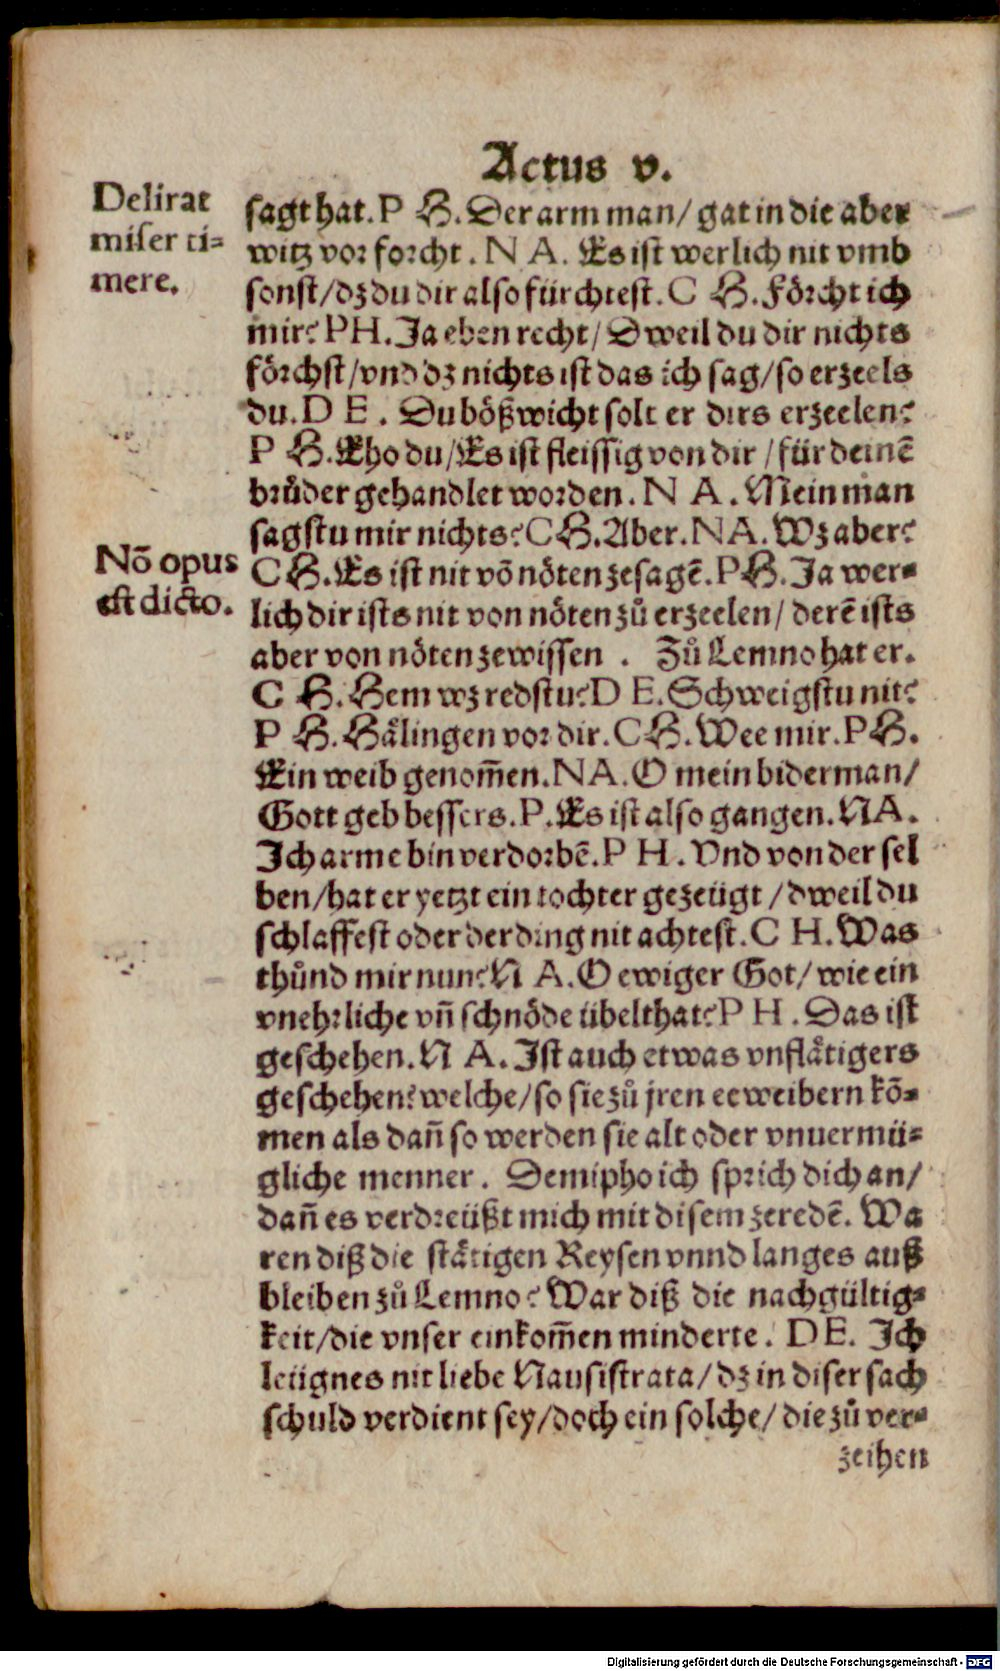 Actus v.
Delirat
miser ti=
mere.
sagt hat. P H. Der arm man/ gat in die aber
witz vor forcht. N A. Es ist werlich nit vmb
sonst/ dz du dir also fürchtest. C H. Förcht ich
mir? PH. Ja eben recht/ Dweil du dir nichts
förchst/ vnd dz nichts ist das ich sag/ so erzeels
du. D E. Du bößwicht solt er dirs erzeelen?
P H. Eho du/ Es ist fleissig von dir/ für deinē
brůder gehandlet worden. N A. Mein man
sagstu mir nichts? CH. Aber. NA. Wz aber?
Nō opus
est dicto.
CH. Es ist nit vō nöten zesagē. PH. Ja wer=
lich dir ists nit von nöten zů erzeelen/ derē ists
aber von nöten zewissen. Zů Lemno hat er.
C H. Hem wz redstu? D E. Schweigstu nit?
P H. Hälingen vor dir. CH. Wee mir. PH.
Ein weib genom̄en. NA. O mein biderman/
Gott geb bessers. P. Es ist also gangen. NA.
Ich arme bin verdorbē. P H. Vnd von der sel
ben/ hat er yetzt ein tochter gezeügt/ dweil du
schlaffest oder der ding nit achtest. C H. Was
thůnd mir nun? N A. O ewiger Got/ wie ein
vnehrliche vn̄ schnöde übelthat? P H. Das ist
geschehen. N A. Ist auch etwas vnflätigers
geschehen? welche/ so sie zů jren eeweibern kō=
men als dan̄ so werden sie alt oder vnuermü=
gliche menner. Demipho ich sprich dich an/
dan̄ es verdreüßt mich mit disem zeredē. Wa
ren diß die stätigen Reysen vnnd langes auß
bleiben zů Lemno? War diß die nachgültig=
keit/ die vnser einkom̄en minderte? DE. Ich
leügnes nit liebe Nausistrata/ dz in diser sach
schuld verdient sey/ doch ein solche/ die zů ver=
zeihen
Digitalisierung gefördert durch die Deutsche Forschungsgemeinschaft - DFG